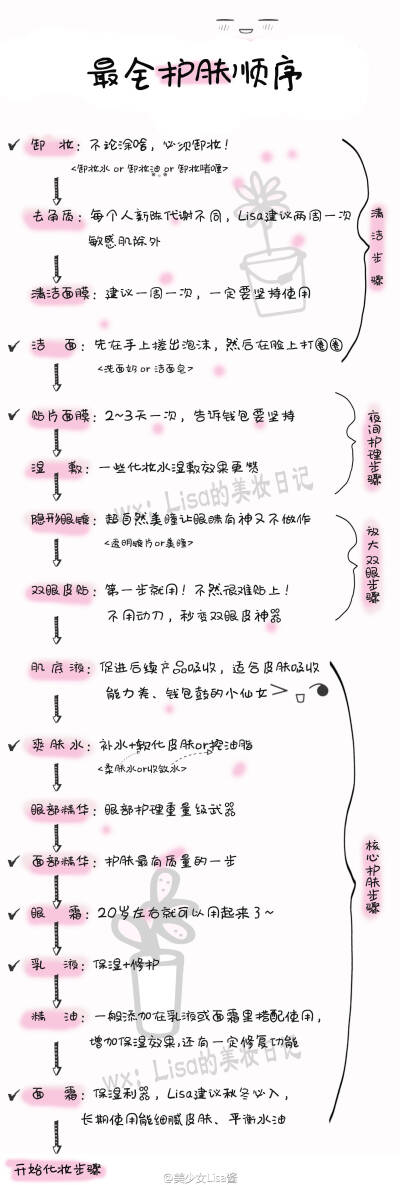 最全护肤顺序
卸妆：不论涂啥，必须卸妆！
<卸妆水 or 卸妆油 or 卸妆啫喱>
去角质：每个人新陈代谢不同，Lisa建议两周一次
敏感肌除外
清洁面膜：建议一周一次，一定要坚持使用
洁面：先在手上搓出泡沫，然后在脸上打圈圈
<洗面奶 or 洁面皂>
清洁步骤
贴片面膜：2~3天一次，告诉钱包要坚持
湿敷：一些化妆水湿敷效果更赞
夜间护理步骤
wx: Lisa的美妆日记
隐形眼镜：超自然美瞳让眼睛有神又不做作
<透明镜片or美瞳>
双眼皮贴：第一步就用！不然很难贴上！
不用动刀，秒变双眼皮神器
放大双眼步骤
肌底液：促进后续产品吸收，适合皮肤吸收
能力差、钱包鼓的小仙女
爽肤水：补水+软化皮肤or控油脂
<柔肤水or收敛水>
眼部精华：眼部护理重量级武器
面部精华：护肤最有质量的一步
眼霜：20岁左右就可以用起来了~
乳液：保湿+修护
精油：一般添加在乳液或面霜里搭配使用，
增加保湿效果,还有一定修复功能
wx: Lisa的美妆日记
面霜：保湿利器，Lisa建议秋冬必入，
长期使用能细腻皮肤、平衡水油
核心护肤步骤
开始化妆步骤
@美少女Lisa酱